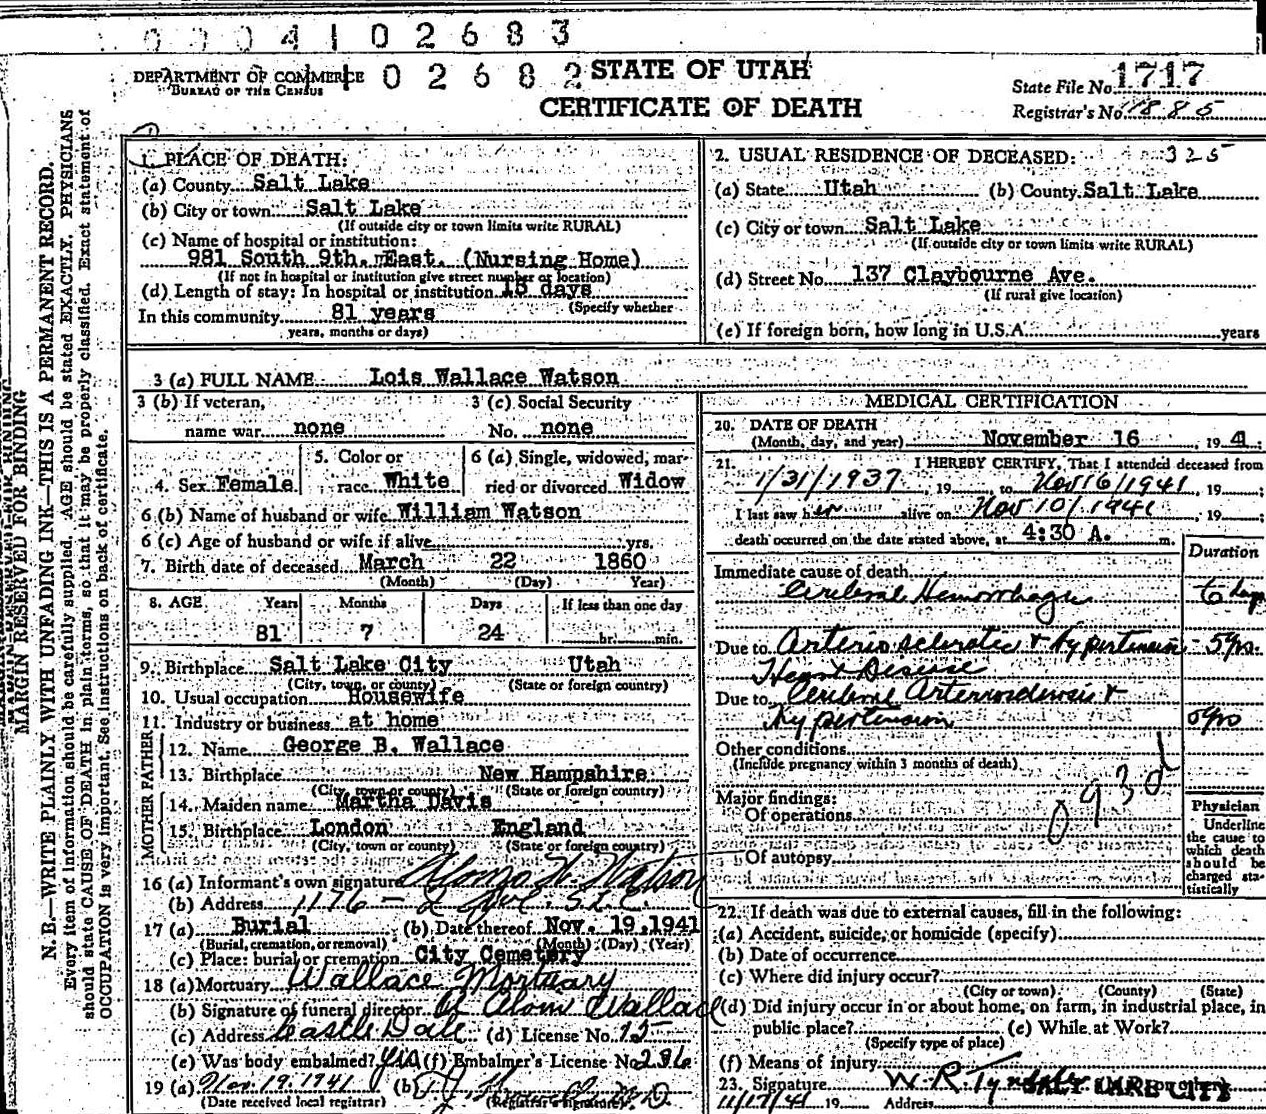 0004102683
DEPARTMENT OF COMMERCE
BUREAU OF THE CENSUS
102682
STATE OF UTAH
CERTIFICATE OF DEATH
State File No. 1717
Registrar's No. 1885
MARGIN RESERVED FOR BINDING
N. B.—WRITE PLAINLY WITH UNFADING INK—THIS IS A PERMANENT RECORD.
Every item of information should be carefully supplied. AGE should be stated EXACTLY. PHYSICIANS
should state CAUSE OF DEATH in plain terms, so that it may be properly classified. Exact statement of
OCCUPATION is very important. See instructions on back of certificate.
1. PLACE OF DEATH:
(a) County Salt Lake
(b) City or town Salt Lake
(If outside city or town limits write RURAL)
(c) Name of hospital or institution:
981 South 9th. East. (Nursing Home)
(If not in hospital or institution give street number or location)
(d) Length of stay: In hospital or institution 15 days
(Specify whether
In this community 81 years
years, months or days)
2. USUAL RESIDENCE OF DECEASED: 325
(a) State Utah (b) County Salt Lake
(c) City or town Salt Lake
(If outside city or town limits write RURAL)
(d) Street No. 137 Claybourne Ave.
(If rural give location)
(e) If foreign born, how long in U.S.A. years
3 (a) FULL NAME Lois Wallace Watson
3 (b) If veteran,
name war none
3 (c) Social Security
No. none
4. Sex Female
5. Color or
race White
6 (a) Single, widowed, mar-
ried or divorced Widow
6 (b) Name of husband or wife William Watson
6 (c) Age of husband or wife if alive yrs.
7. Birth date of deceased March 22 1860
(Month) (Day) Year)
8. AGE Years Months Days If less than one day
81 7 24 hr. min.
9. Birthplace Salt Lake City Utah
(City, town, or county) (State or foreign country)
10. Usual occupation Housewife
11. Industry or business at home
FATHER
12. Name George B. Wallace
13. Birthplace New Hampshire
(City, town or county) (State or foreign country)
MOTHER
14. Maiden name Martha Davis
15. Birthplace London England
(City, town or county) (State or foreign country)
16 (a) Informant's own signature Alonzo W. Watson
(b) Address 1176 - 2 Ave. S.L.C.
17 (a) Burial (b) Date thereof Nov. 19,1941
(Burial, cremation, or removal) (Month) (Day) (Year)
(c) Place: burial or cremation City Cemetery
18 (a) Mortuary Wallace Mortuary
(b) Signature of funeral director Alom Wallace
(c) Address Castle Dale (d) License No. 15
(e) Was body embalmed? yes (f) Embalmer's License No. 286
19 (a) Nov. 19. 1941 (b) M D
(Date received local registrar) (Registrar's signature)
MEDICAL CERTIFICATION
20. DATE OF DEATH
(Month, day, and year) November 16, 194
21. I HEREBY CERTIFY, That I attended deceased from
1/31/1937, 19 to Nov 16/1941, 19 ;
I last saw her alive on Nov 10/1941, 19 ;
death occurred on the date stated above, at 4:30 A. m.
Duration
Immediate cause of death
Cerebral Hemorrhage 6 days
Due to Arterio sclerotic & Hypertension - 5 yrs.
Heart Disease
Due to Cerebral Arteriosclerosis &
Hypertension 5 yrs
Other conditions
(Include pregnancy within 3 months of death)
Major findings:
Of operations
Of autopsy
093d
Physician
Underline
the cause to
which death
should be
charged sta-
tistically
22. If death was due to external causes, fill in the following:
(a) Accident, suicide, or homicide (specify)
(b) Date of occurrence
(c) Where did injury occur?
(City or town) (County) (State)
(d) Did injury occur in or about home, on farm, in industrial place, in
public place? (e) While at Work?
(Specify type of place)
(f) Means of injury
23. Signature W. R. Tyndale
SALT LAKE CITY
11/17/41 19 Address